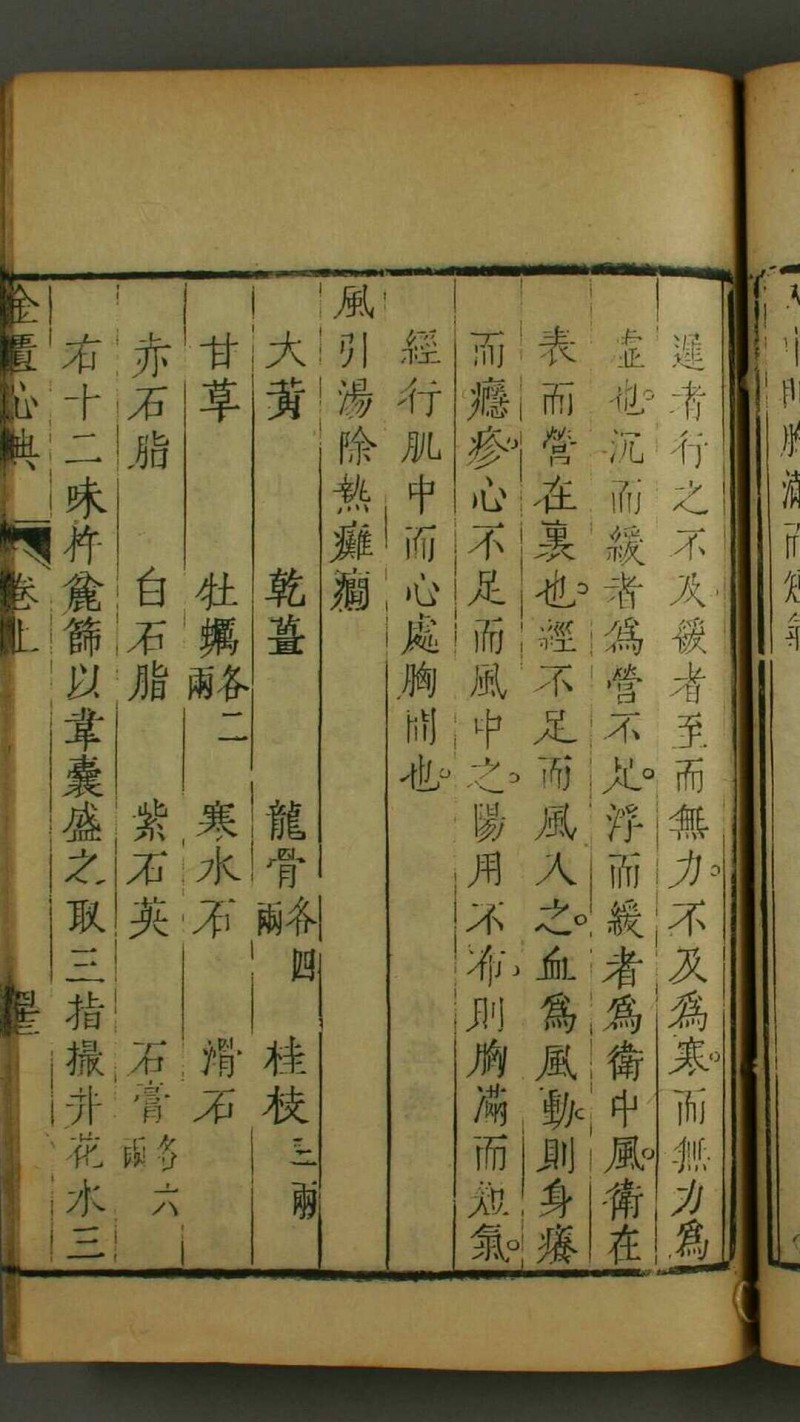 遲者行之不及緩者至而無力。不及爲寒。而無力爲
虛也。沉而緩者爲營不足。浮而緩者爲衛中風。衛在
表而營在裏也。經不足而風入之。血爲風動。則身癢
而癮疹。心不足而風中之。陽用不布。則胸滿而短氣。
經行肌中而心處胸間也。
風引湯除熱癱癎
大黃 乾薑 龍骨各四兩 桂枝三兩
甘草 牡蠣各二兩 寒水石 滑石
赤石脂 白石脂 紫石英 石膏各六兩
右十二味杵麄篩以韋囊盛之取三指撮井花水三
金匱心典 卷上